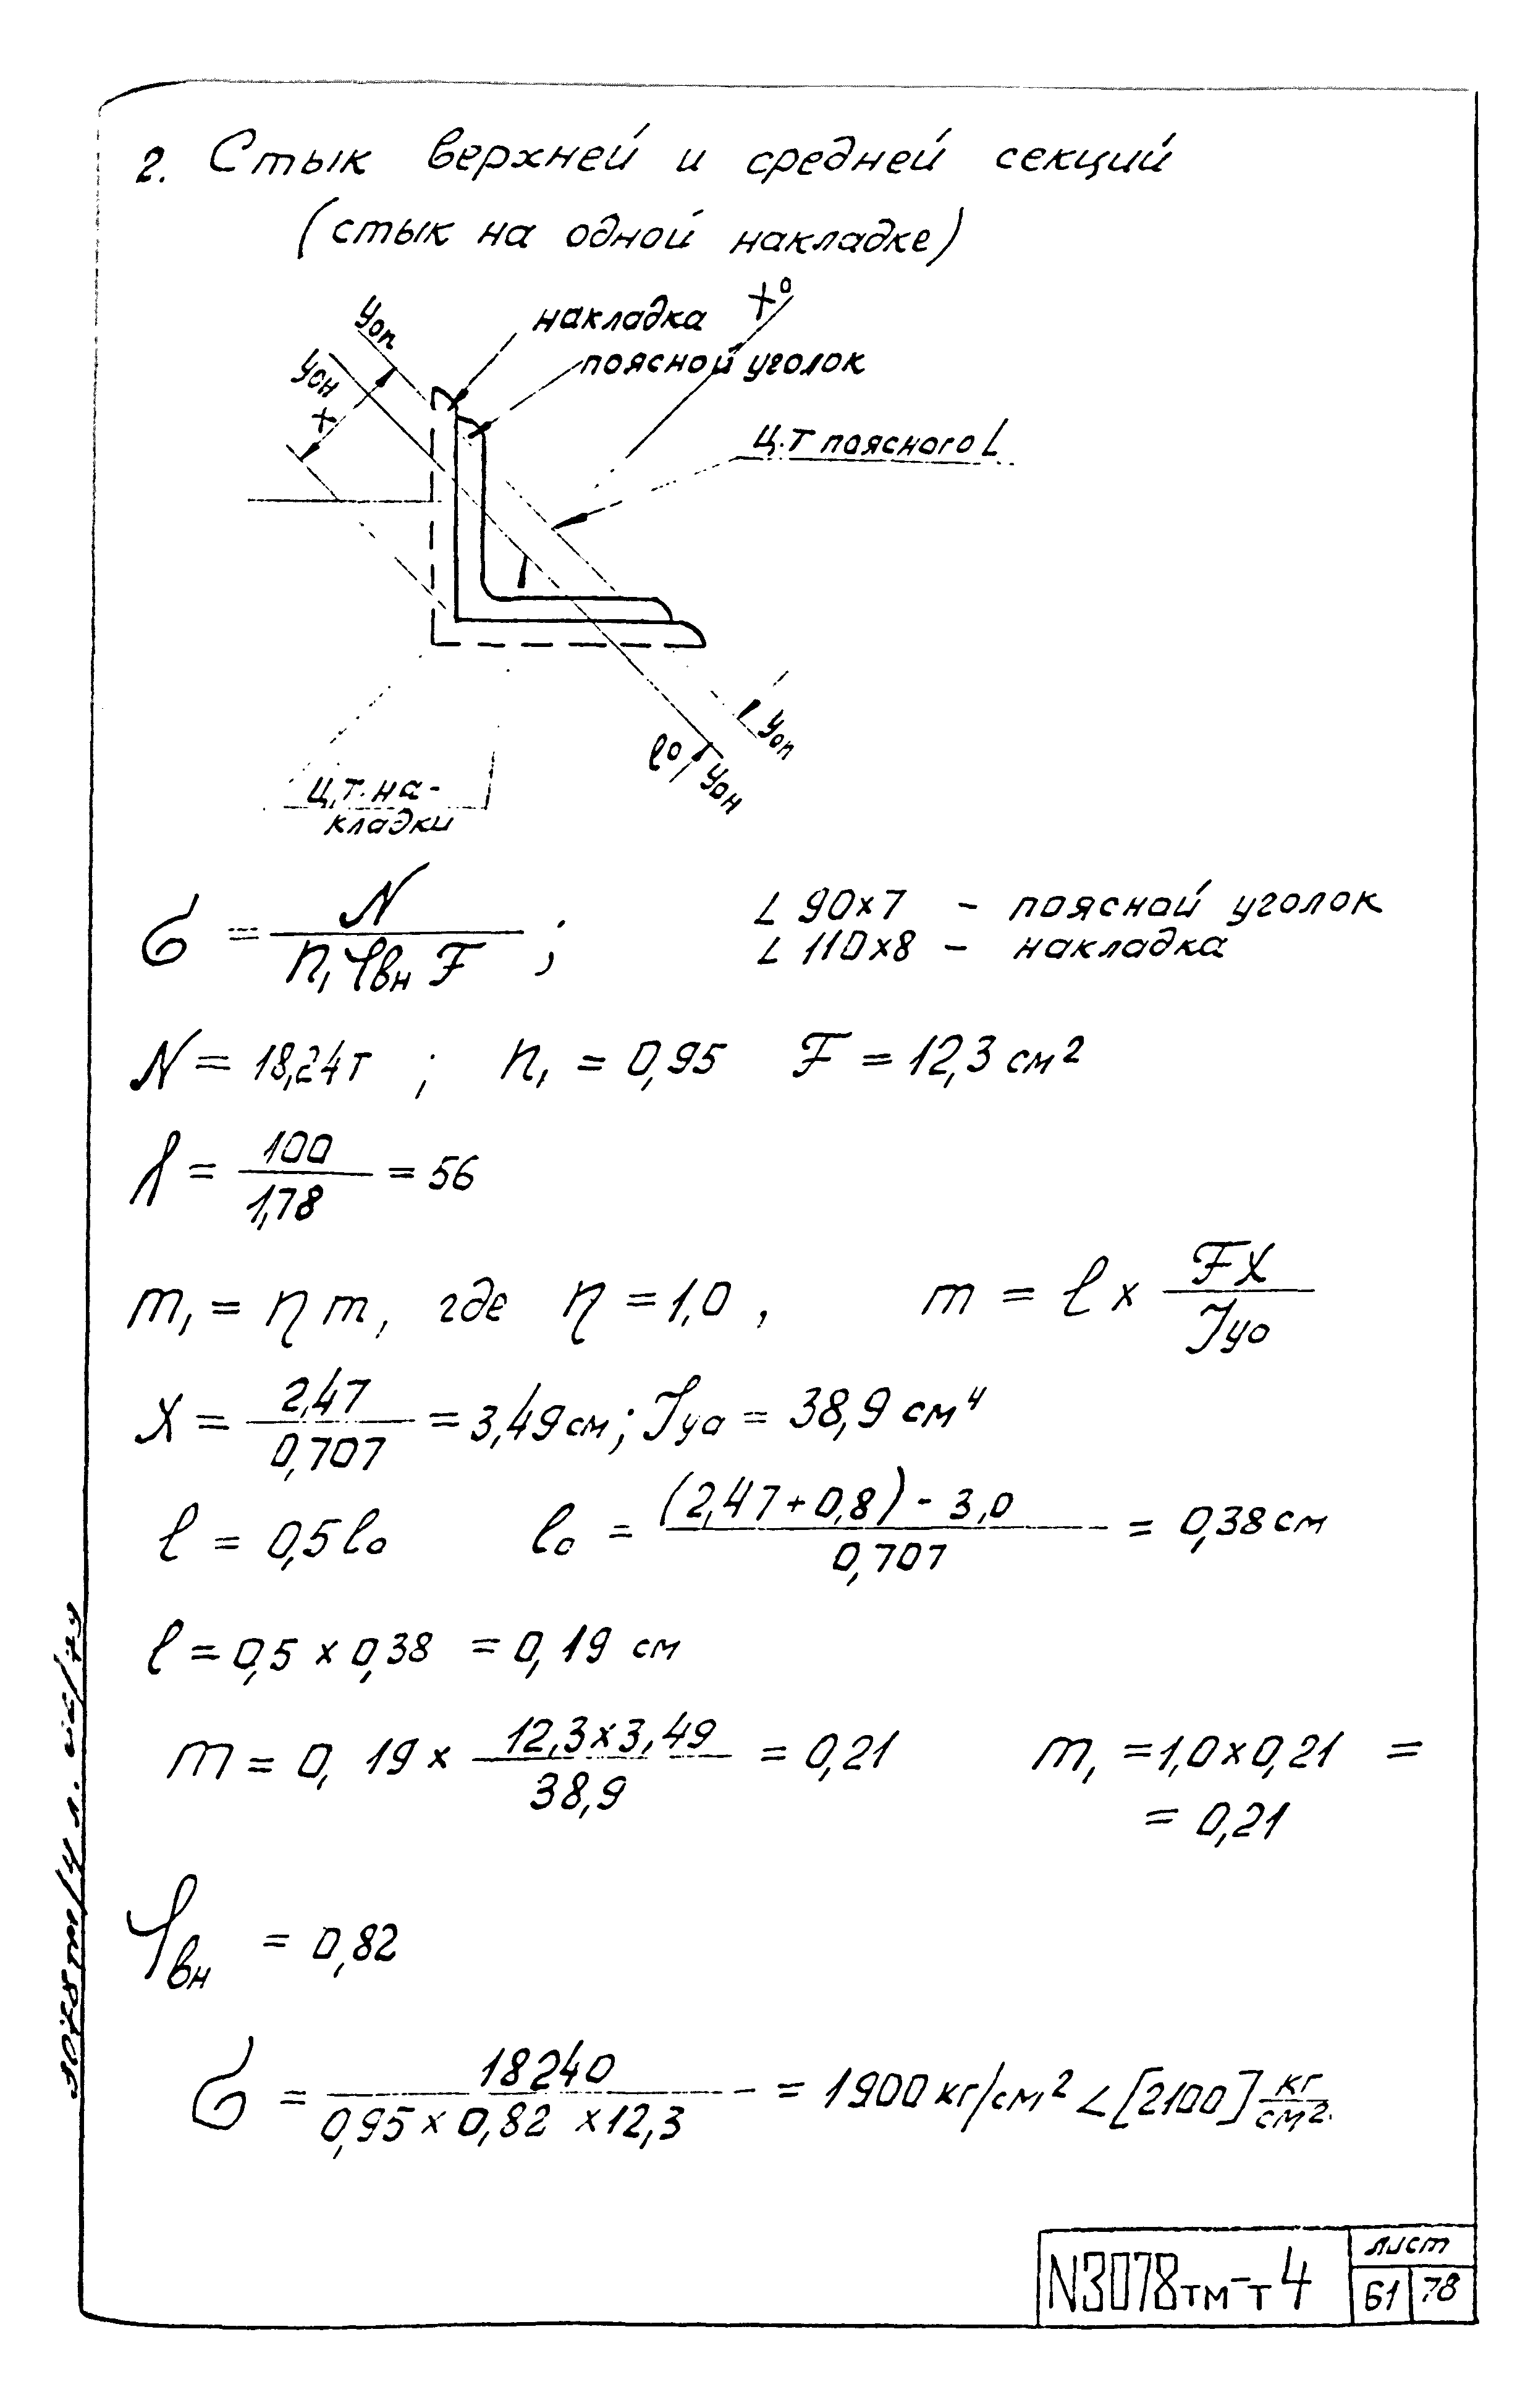 2. Стык верхней и средней секций
(стык на одной накладке)
Уоп
Уон
х
накладка
х⁰
поясной уголок
Ц.Т поясного L
l⁰
Уон
l
Уоп
Ц.Т. на-
кладки
σ = N / (n₁ φвн F) ;
∠ 90×7 – поясной уголок
∠ 110×8 – накладка
N = 18,24т ; n₁ = 0,95 F = 12,3 см²
λ = 100 / 1,78 = 56
m₁ = η m, где η = 1,0 , m = l × FX / Jyo
X = 2,47 / 0,707 = 3,49 см; Jyo = 38,9 см⁴
l = 0,5 l₀ l₀ = (2,47+0,8) - 3,0 / 0,707 = 0,38 см
l = 0,5 × 0,38 = 0,19 см
m = 0,19 × 12,3×3,49 / 38,9 = 0,21 m₁ = 1,0×0,21 =
= 0,21
φвн = 0,82
σ = 18240 / 0,95 × 0,82 × 12,3 = 1900 кг/см² < [2100] кг/см².
N3078тм-т4
лист
61
78